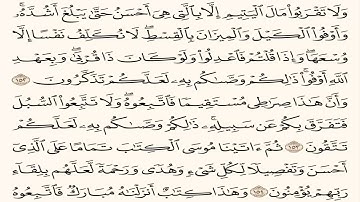 وَلَا تَقْرَبُوا۟ مَالَ ٱلْيَتِيمِ إِلَّا بِٱلَّتِى هِىَ أَحْسَنُ حَتَّىٰ يَبْلُغَ أَشُدَّهُۥ ۖ
وَأَوْفُوا۟ ٱلْكَيْلَ وَٱلْمِيزَانَ بِٱلْقِسْطِ ۖ لَا نُكَلِّفُ نَفْسًا إِلَّا
وُسْعَهَا ۖ وَإِذَا قُلْتُمْ فَٱعْدِلُوا۟ وَلَوْ كَانَ ذَا قُرْبَىٰ ۖ وَبِعَهْدِ
ٱللَّهِ أَوْفُوا۟ ۚ ذَٰلِكُمْ وَصَّىٰكُم بِهِۦ لَعَلَّكُمْ تَذَكَّرُونَ ١٥٢
وَأَنَّ هَٰذَا صِرَٰطِى مُسْتَقِيمًا فَٱتَّبِعُوهُ ۖ وَلَا تَتَّبِعُوا۟ ٱلسُّبُلَ
فَتَفَرَّقَ بِكُمْ عَن سَبِيلِهِۦ ۚ ذَٰلِكُمْ وَصَّىٰكُم بِهِۦ لَعَلَّكُمْ
تَتَّقُونَ ١٥٣ ثُمَّ ءَاتَيْنَا مُوسَى ٱلْكِتَٰبَ تَمَامًا عَلَى ٱلَّذِىٓ
أَحْسَنَ وَتَفْصِيلًا لِّكُلِّ شَىْءٍ وَهُدًى وَرَحْمَةً لَّعَلَّهُم بِلِقَآءِ
رَبِّهِمْ يُؤْمِنُونَ ١٥٤ وَهَٰذَا كِتَٰبٌ أَنزَلْنَٰهُ مُبَارَكٌ فَٱتَّبِعُوهُ